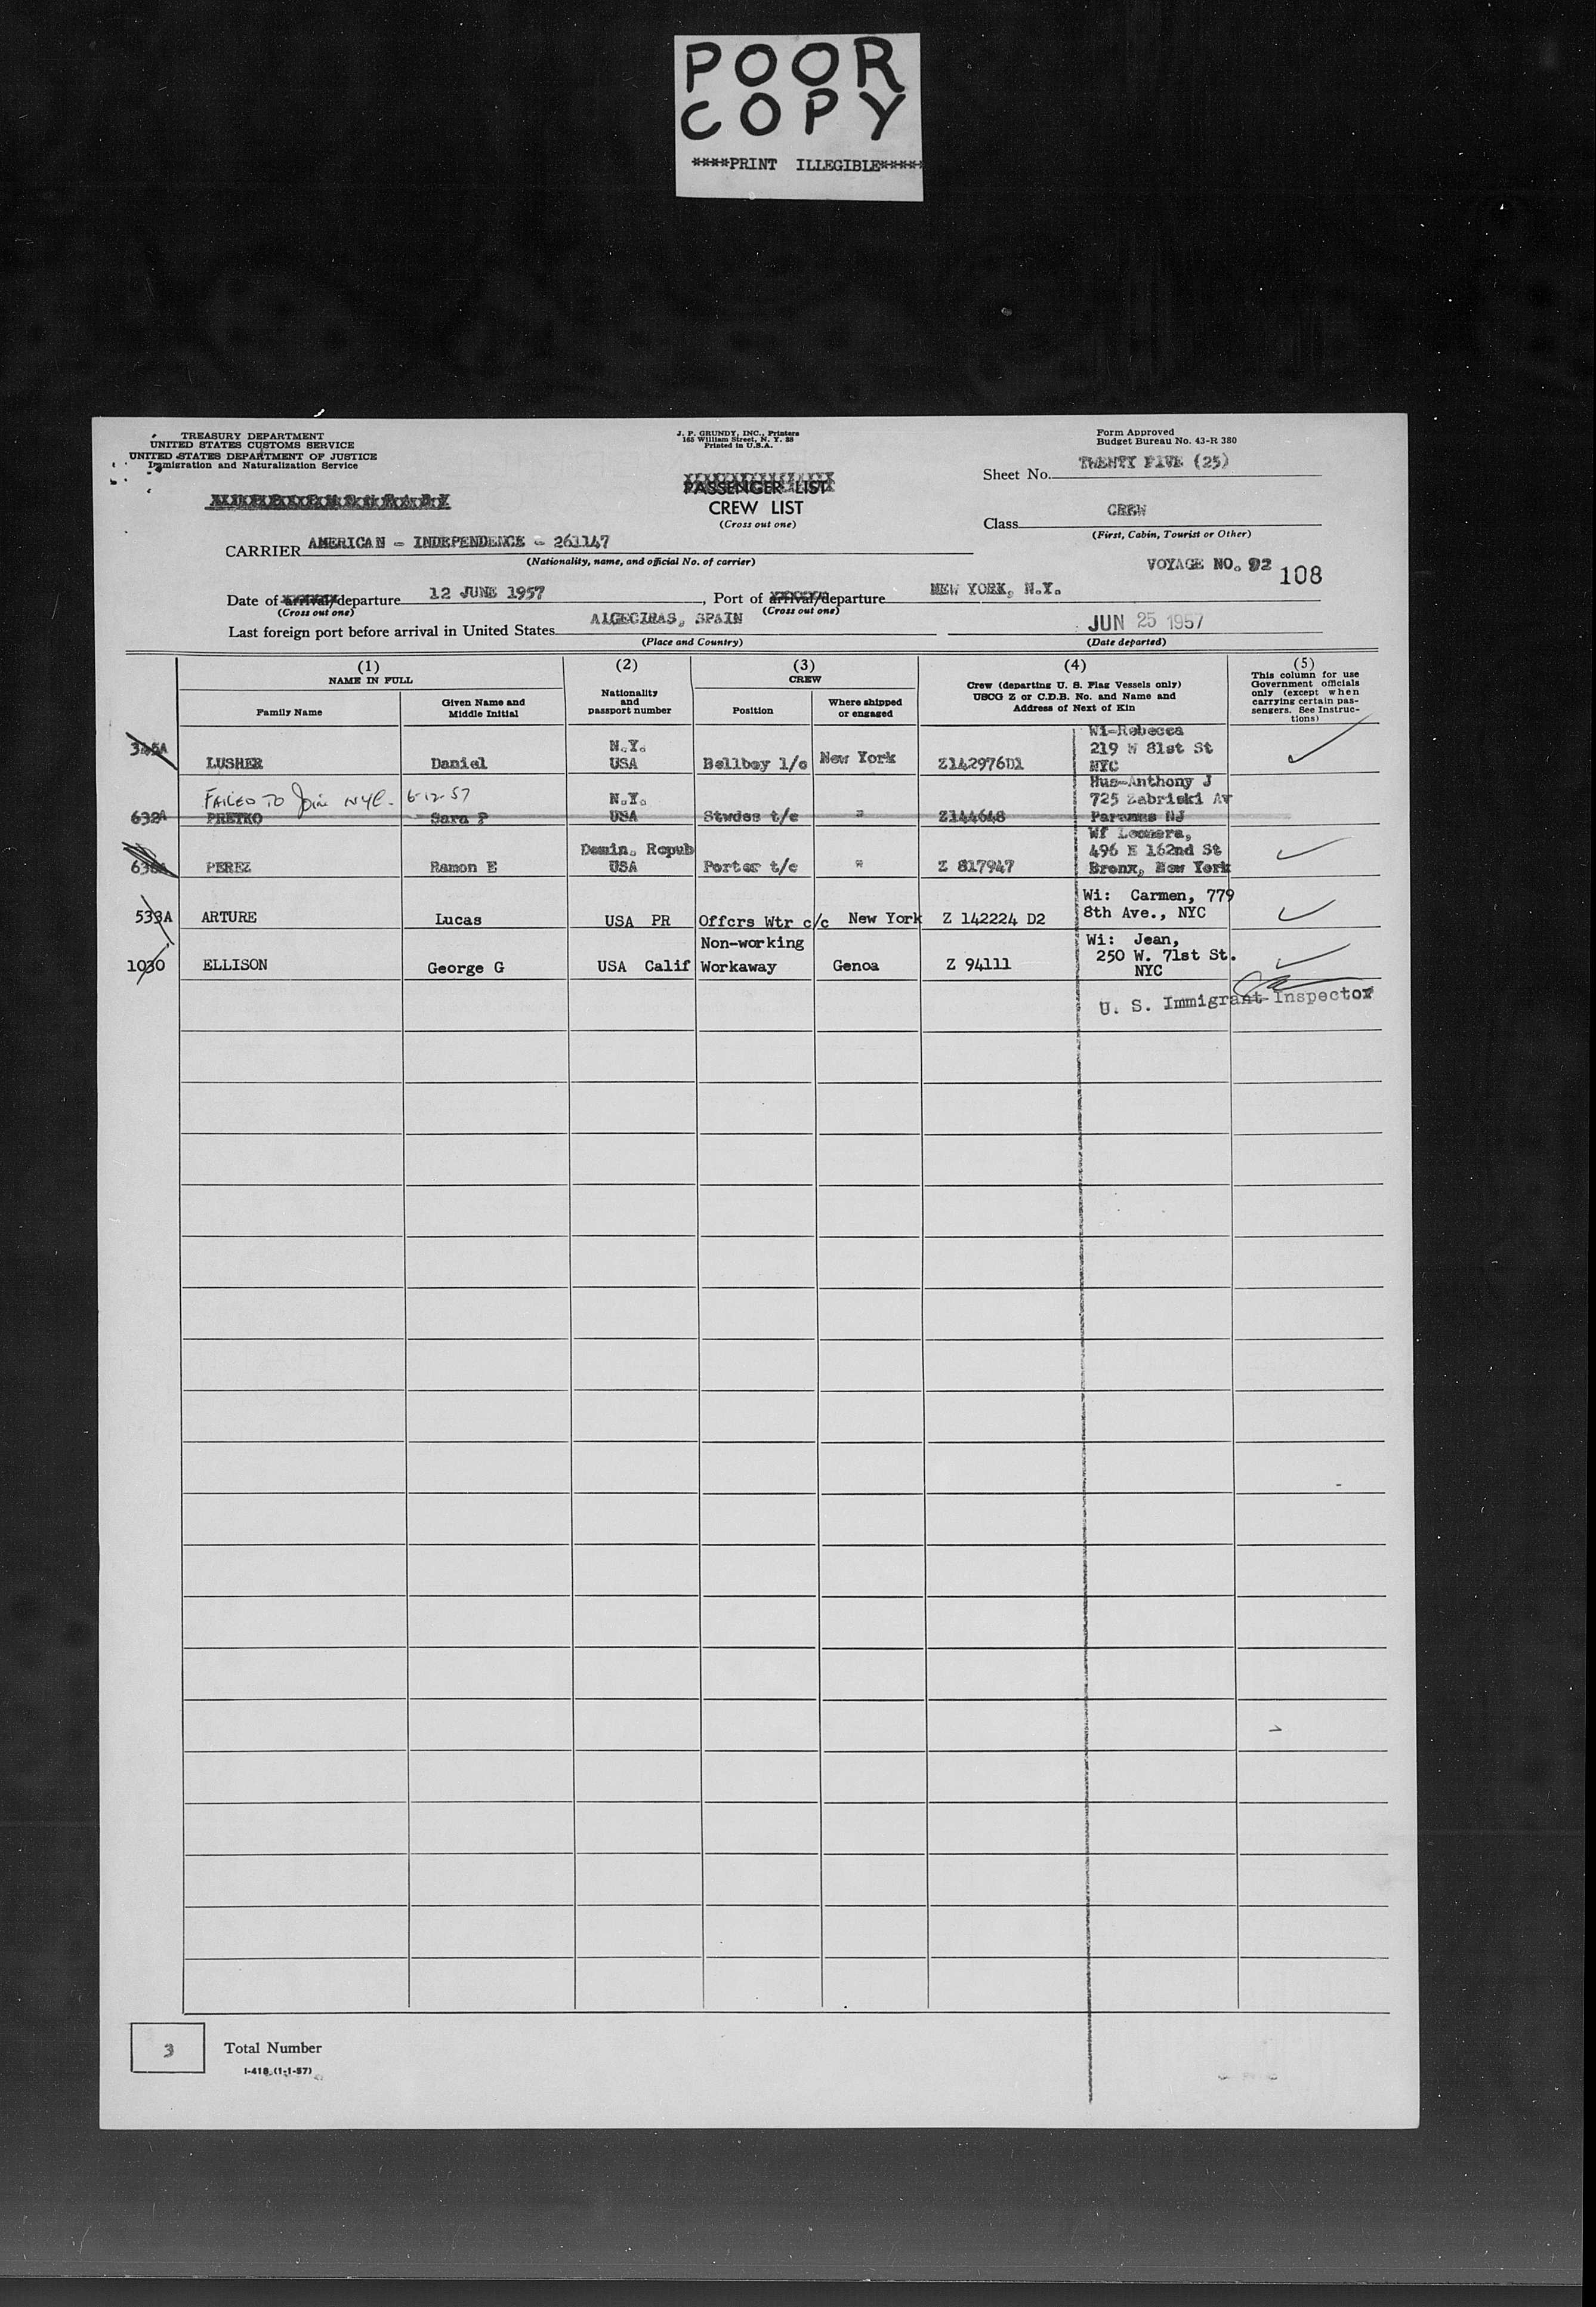 POOR
COPY
****PRINT ILLEGIBLE*****
TREASURY DEPARTMENT
UNITED STATES CUSTOMS SERVICE
UNITED STATES DEPARTMENT OF JUSTICE
Immigration and Naturalization Service
J. P. GRUNDY, INC., Printers
165 William Street, N. Y. 38
Printed in U.S.A.
Form Approved
Budget Bureau No. 43-R 380
Sheet No. TWENTY FIVE (25)
PASSENGER LIST
CREW LIST
(Cross out one)
Class CREW
(First, Cabin, Tourist or Other)
CARRIER AMERICAN - INDEPENDENCE - 261147
(Nationality, name, and official No. of carrier)
VOYAGE NO. 92 108
Date of arrival/departure 12 JUNE 1957, Port of arrival/departure NEW YORK, N.Y.
(Cross out one) (Cross out one)
Last foreign port before arrival in United States ALGECIRAS, SPAIN JUN 25 1957
(Place and Country) (Date departed)
(1) (2) (3) (4) (5)
NAME IN FULL Nationality and passport number CREW Crew (departing U. S. Flag Vessels only) USCG Z or C.D.B. No. and Name and Address of Next of Kin This column for use Government officials only (except when carrying certain passengers. See Instructions)
Family Name Given Name and Middle Initial Position Where shipped or engaged
Wi-Rebecca
345A N.Y. 219 W 81st St
LUSHER Daniel USA Bellboy 1/c New York Z142976D1 NYC
Hus-Anthony J
FAILED TO Join NYC. 6-12-57 N.Y. 725 Zabriski Av
632A PRETKO Sara P USA Stwdes t/c " Z144648 Paramus NJ
Wf Leonora,
Domin. Repub 496 E 162nd St
PEREZ Ramon E USA Porter t/c " Z 817947 Bronx, New York
Wi: Carmen, 779
533A ARTURE Lucas USA PR Offcrs Wtr c/c New York Z 142224 D2 8th Ave., NYC
Non-working Wi: Jean,
250 W. 71st St.
1030 ELLISON George G USA Calif Workaway Genoa Z 94111 NYC
U. S. Immigrant Inspector
3 Total Number
I-418 (1-1-57)